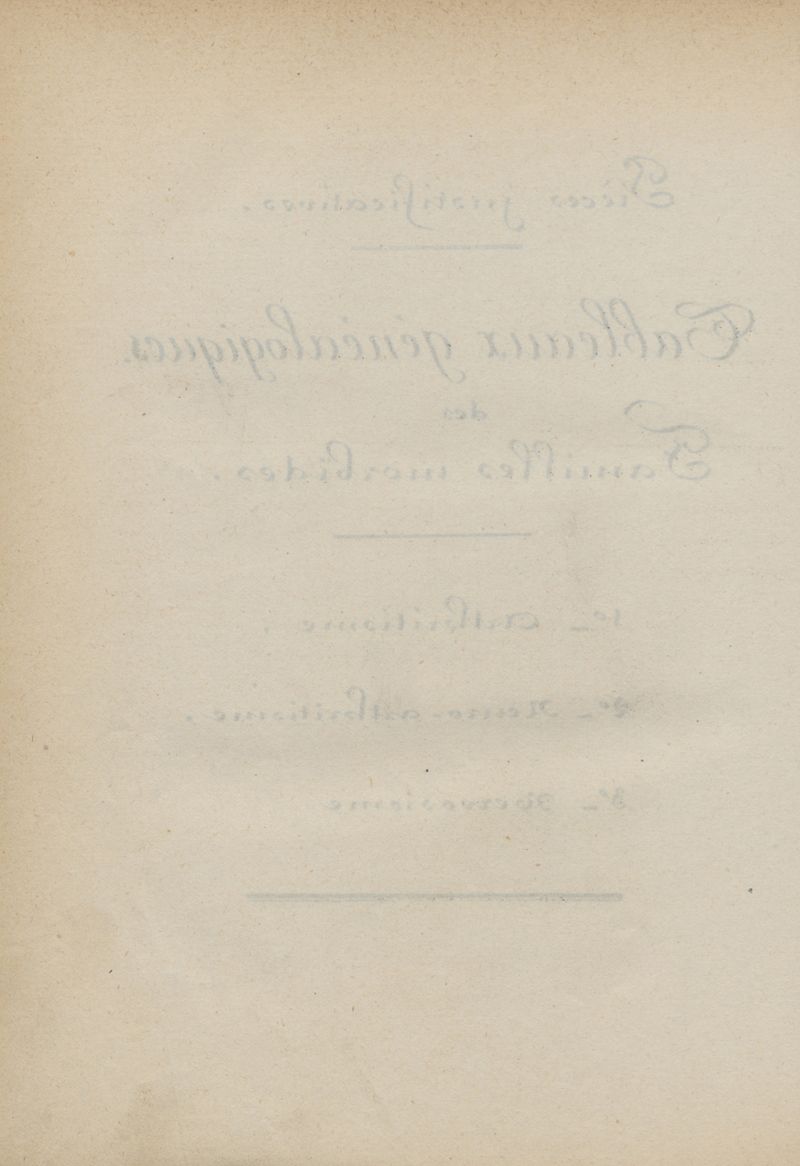 Pièces justificatives.
Tableaux généalogiques
des
Familles morbides.
1º_ Arthritisme.
2º_ Neuro-arthritisme.
3º_ Nervosisme